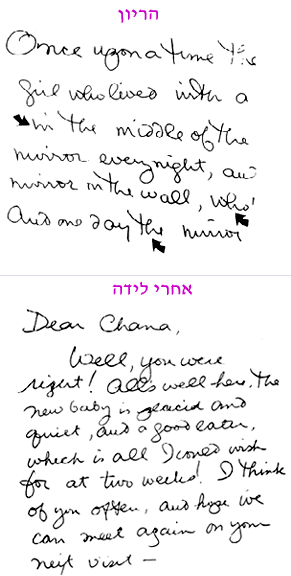 הריון
Once upon a time the
girl who lived with a
in the middle of the
mirror every night, and
mirror on the wall, who
And one day the mirror
אחרי לידה
Dear Chana,
Well, you were
right! All's well here. The
new baby is placid and
quiet, and a good eater,
which is all I could wish
for at two weeks! I think
of you often, and hope we
can meet again on your
next visit —